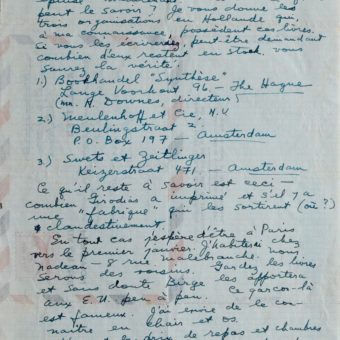 peut le savoir. Je vous donne les
trois organisations en Hollande qui,
à ma connaissance, possèdent ces livres.
Si vous les écriverez, peut-être demandant
combien d'eux restent en stock, vous
saurez la vérité.
1.) Boekhandel "Synthèse"
Lange Voorhout 96 — The Hague
(Mr. H. Downes, directeur)
2.) Meulenhoff et Cie, N.V.
Beulingstraat 2
P.O. Box 197 — Amsterdam
3.) Swets et Zeitlinger
Keizerstraat 471 — Amsterdam
Ce qu'il reste à savoir est ceci —
combien Girodias a imprimé et s'il y a
une "fabrique" qui les sortirent (où?)
clandestinement.
En tout cas j'espère d'être à Paris
vers le premier janvier. J'habiterai chez
Nadeau — 5 rue Malebranche. Nous
serons des voisins. Gardez les livres
et sans doute Birge les emportera
aux E.U. peu à peu. Ce garçon-là
est fameux. J'ai envie de le con-
naître en chair et os.
de repas et chambres